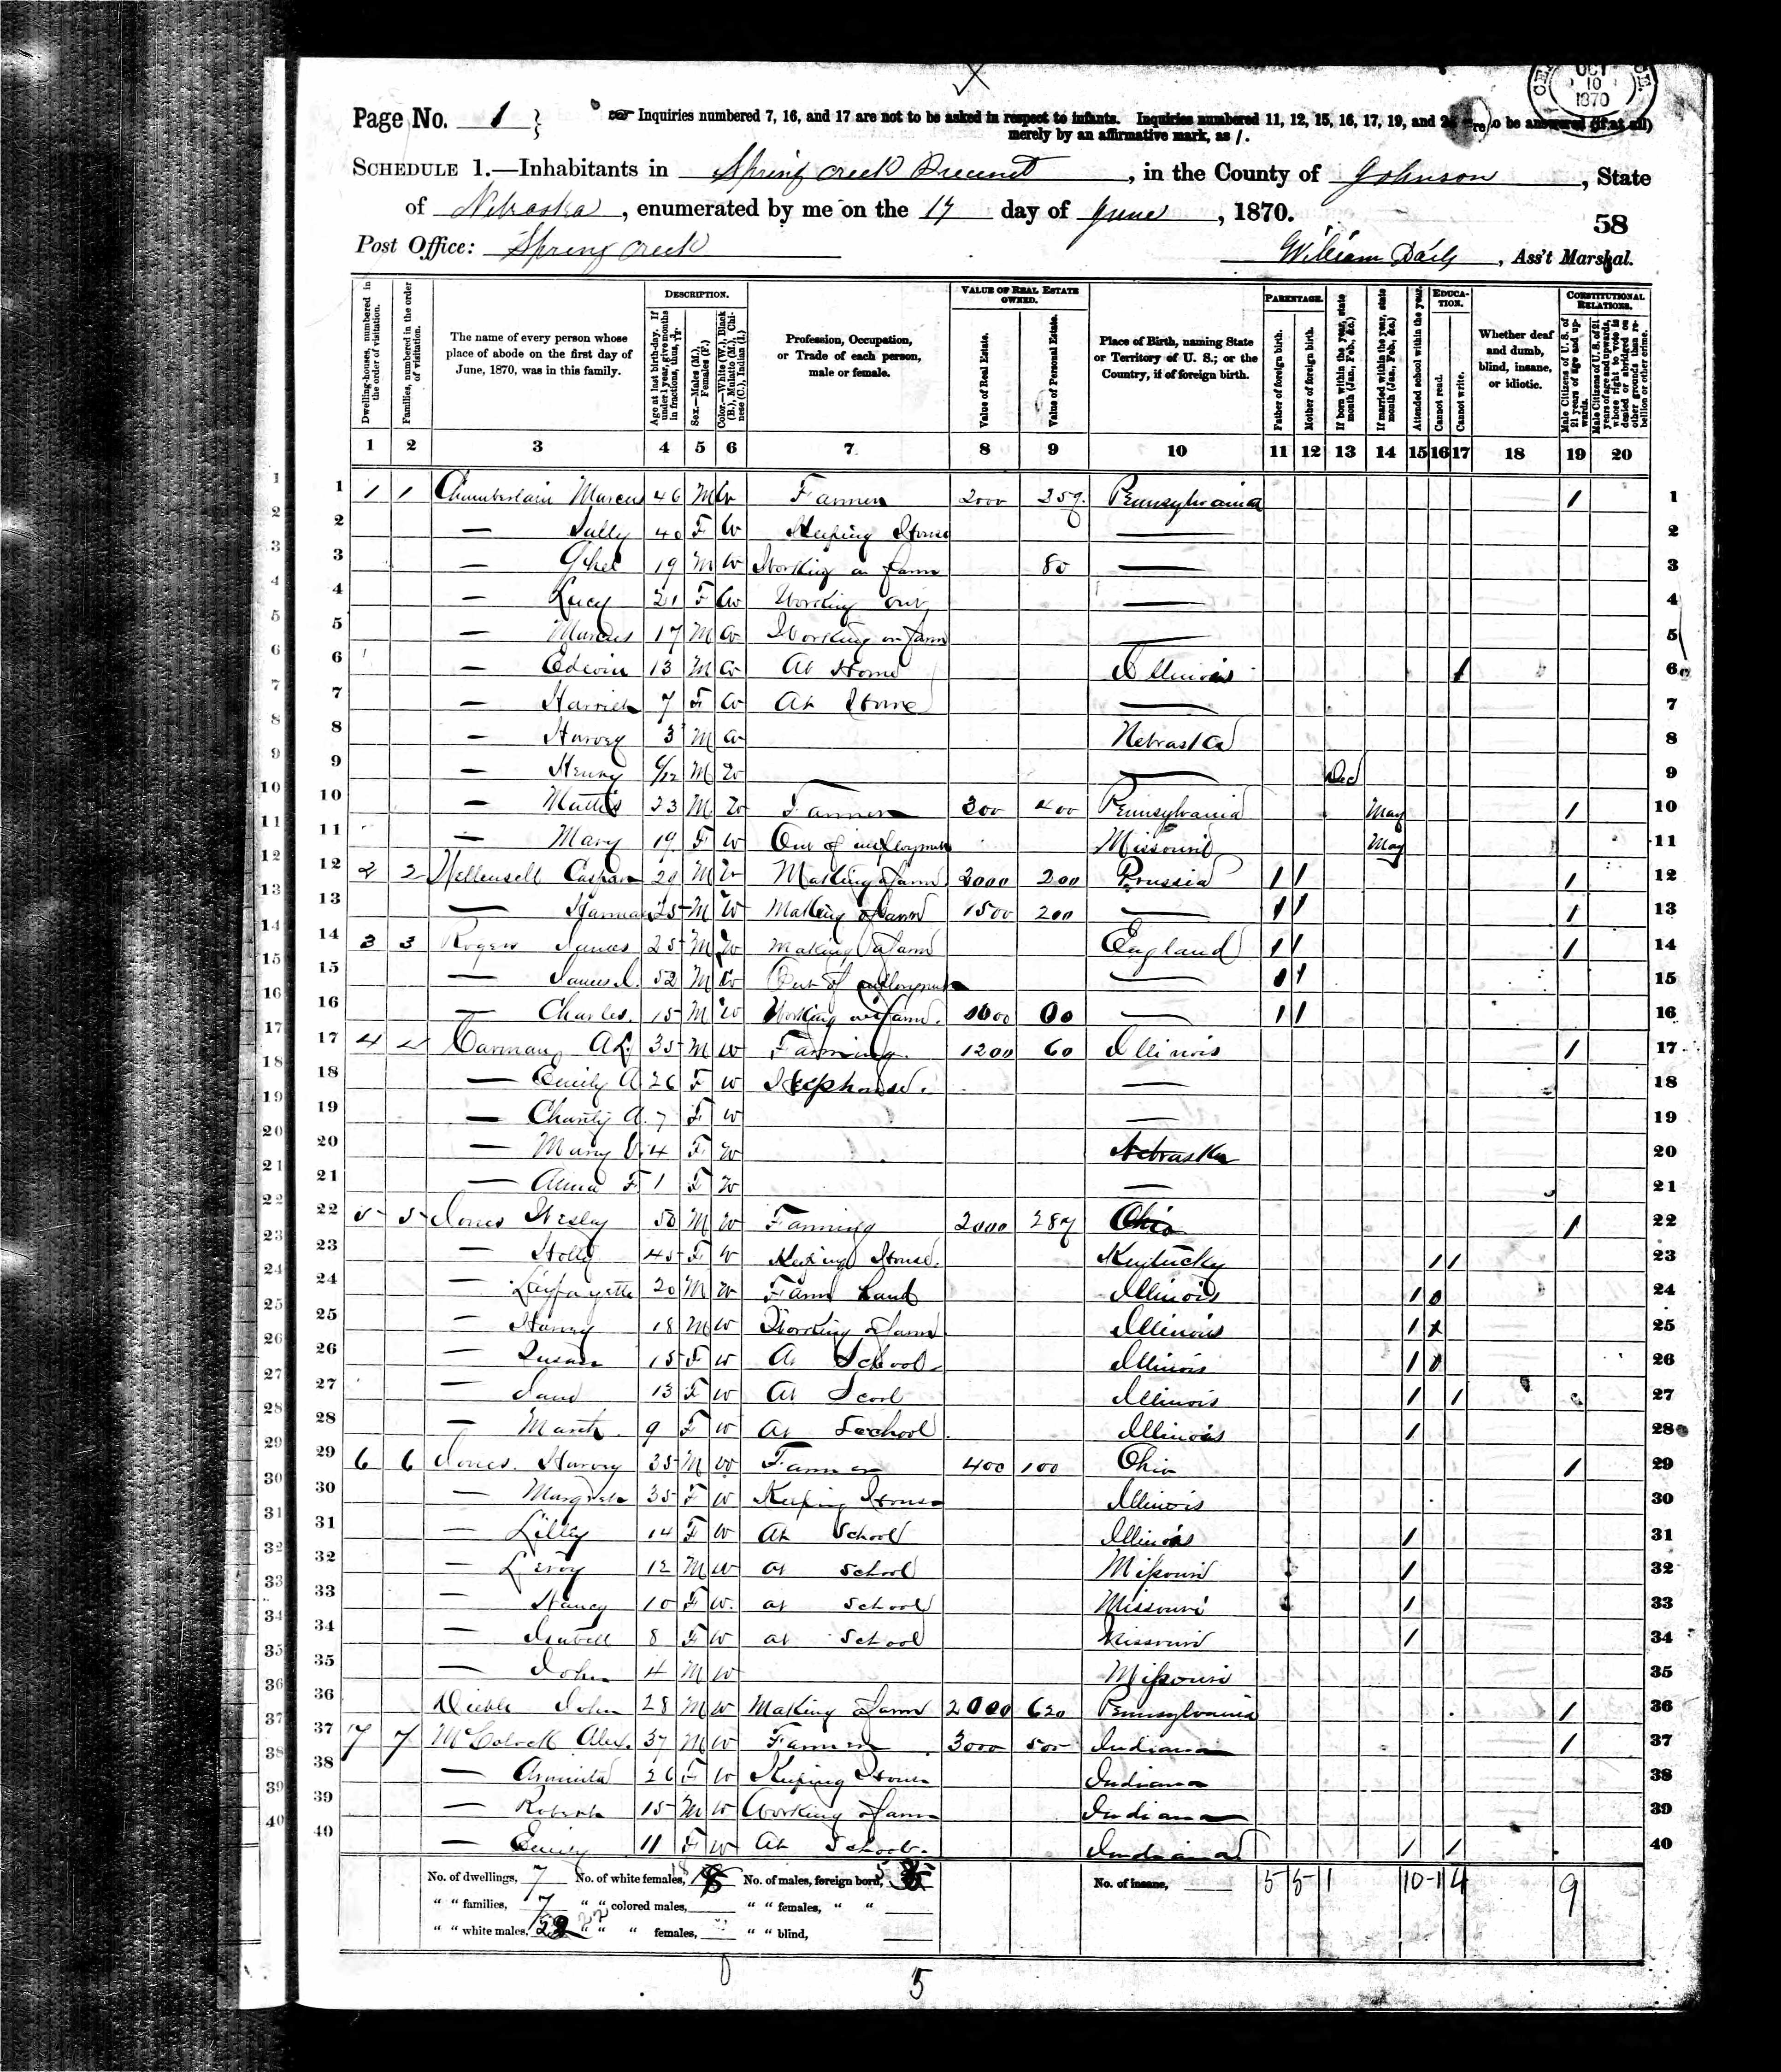 OCT
10
1870
Page No. 1
Inquiries numbered 7, 16, and 17 are not to be asked in respect to infants. Inquiries numbered 11, 12, 15, 16, 17, 19, and 20 are to be answered (if at all)
merely by an affirmative mark, as /.
SCHEDULE 1.—Inhabitants in Spring Creek Precinct, in the County of Johnson, State
of Nebraska, enumerated by me on the 17 day of June, 1870.
58
Post Office: Spring Creek William Daily, Ass't Marshal.
Dwelling-houses, numbered in the order of visitation.
Families, numbered in the order of visitation.
The name of every person whose place of abode on the first day of June, 1870, was in this family.
DESCRIPTION.
Age at last birth-day. If under 1 year, give months in fractions, thus, 3/12.
Sex.—Males (M.), Females (F.)
Color.—White (W.), Black (B.), Mulatto (M.), Chinese (C.), Indian (I.)
Profession, Occupation, or Trade of each person, male or female.
VALUE OF REAL ESTATE OWNED.
Value of Real Estate.
Value of Personal Estate.
Place of Birth, naming State or Territory of U. S.; or the Country, if of foreign birth.
PARENTAGE.
Father of foreign birth.
Mother of foreign birth.
If born within the year, state month (Jan., Feb., &c.)
If married within the year, state month (Jan., Feb., &c.)
Attended school within the year.
EDUCATION.
Cannot read.
Cannot write.
Whether deaf and dumb, blind, insane, or idiotic.
CONSTITUTIONAL RELATIONS.
Male Citizens of U. S. of 21 years of age and upwards.
Male Citizens of U. S. of 21 years of age and upwards, whose right to vote is denied or abridged on other grounds than rebellion or other crime.
1 2 3 4 5 6 7 8 9 10 11 12 13 14 15 16 17 18 19 20
1 1 1 Chamberlain Marcus 46 M W Farmer 2000 259 Pennsylvania / 1
2 — Sally 40 F W Keeping House — 2
3 — 19 M W Working on farm 80 — 3
4 — Lucy 21 F W Working out — 4
5 — Marcus 17 M W Working on farm — 5
6 — Edwin 13 M W At Home Illinois / 6
7 — Harriet 7 F W At Home — 7
8 — Harvey 3 M W Nebraska 8
9 — Henry 6/12 M W — Dec 9
10 — 23 M W Farmer 300 400 Pennsylvania May / 10
11 — Mary 19 F W Out of employment Missouri May 11
12 2 2 Caspar 29 M W Making a farm 3000 200 Prussia / / / 12
13 — Herman 25 M W Making a farm 1500 200 — / / / 13
14 3 3 Rogers James 25 M W Making a farm England / / / 14
15 — James 52 M W Out of employment — / / 15
16 — Charles. 15 M W Working on farm. 1000 00 — / / 16
17 4 4 Carman A L. 35 M W Farming 1200 60 Illinois / 17
18 — Emily A 26 F W Keephouse. — 18
19 — Charity A. 7 F W — 19
20 — Mary 4 F W Nebraska 20
21 — Anna F 1 F W — 21
22 5 5 Jones Wesley 50 M W Farming 2000 287 Ohio / 22
23 — 45 F W Keeping House. Kentucky / / 23
24 — Layfayette 20 M W Farm hand Illinois / 24
25 — Harvey 18 M W Working a farm Illinois / x 25
26 — Susan 15 F W At School Illinois / 26
27 — Jane 13 F W At Scool Illinois / / 27
28 — 9 F W At School Illinois / 28
29 6 6 Jones. Harvey 35 M W Farmer 400 100 Ohio / 29
30 — 35 F W Keeping House Illinois 30
31 — Lilly 14 F W At School Illinois / 31
32 — Leroy 12 M W at School Missouri / 32
33 — Nancy 10 F W. at School Missouri / 33
34 — Isabell 8 F W at School Missouri / 34
35 — John 4 M W Missouri 35
36 Diehl John 28 M W Making a farm 2000 620 Pennsylvania / 36
37 7 7 Alex. 37 M W Farmer 3000 500 Indiana / 37
38 — Arminta 26 F W Keeping House Indiana 38
39 — Robert 15 M W Working a farm Indiana 39
40 — Emily 11 F W At School. Indiana / / 40
No. of dwellings, 7 No. of white females, 18 No. of males, foreign born, 5 No. of insane, 5 5 1 10 1 4 9
" " families, 7 " " colored males, " " females, " "
" " white males, 22 " " " females, " " blind,
5